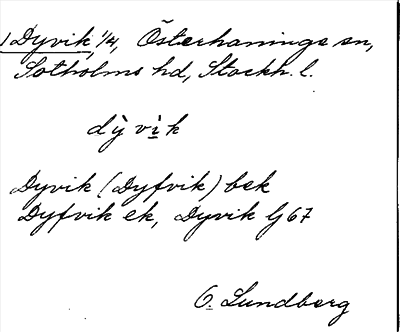 1 Dyvik, 1/4, Österhaninge sn,
Sotholms hd, Stockh. l.
dỳ vi̱k
Dyvik (Dyfvik) bek
Dyfvik ek, Dyvik G67
O. Lundberg